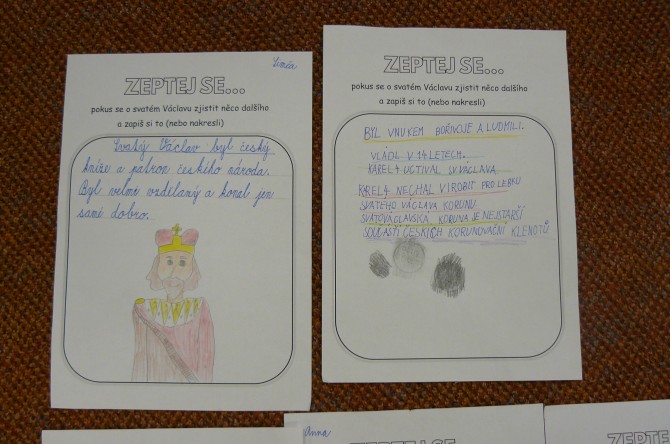 Šimon
ZEPTEJ SE...
pokus se o svatém Václavu zjistit něco dalšího
a zapiš si to (nebo nakresli)
Svatý Václav byl český
kníže a patron českého národa.
Byl velmi vzdělaný a konal jen
samé dobro.
ZEPTEJ SE...
pokus se o svatém Václavu zjistit něco dalšího
a zapiš si to (nebo nakresli)
BYL VNUKEM BOŘIVOJE A LUDMILI.
VLÁDL V 14 LETECH.
KAREL 4 UCTIVAL SV. VÁCLAVA
KAREL 4 NECHAL VIROBIT PRO LEBKU
SVATÉHO VÁCLAVA KORUNU.
SVATOVÁCLAVSKÁ KORUNA JE NEJSTARŠÍ
SOUČÁSTÍ ČESKÝCH KORUNOVAČNÍ KLENOTŮ
Anna
ZEPTEJ SE...